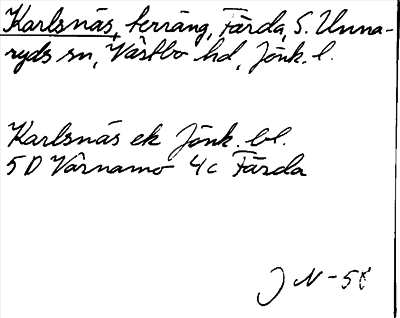 Karlsnäs, terräng, Färda, S. Unna-
ryds sn, Västbo hd, Jönk. l.
Karlsnäs ek Jönk. bl.
5D Värnamo 4c Färda
JN-58